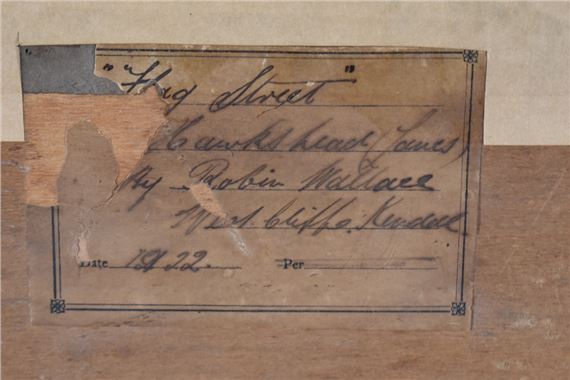 "Flag Street"
Hawkshead (Lancs)
By Robin Wallace
West Cliffe. Kendal.
Date 1922 Per